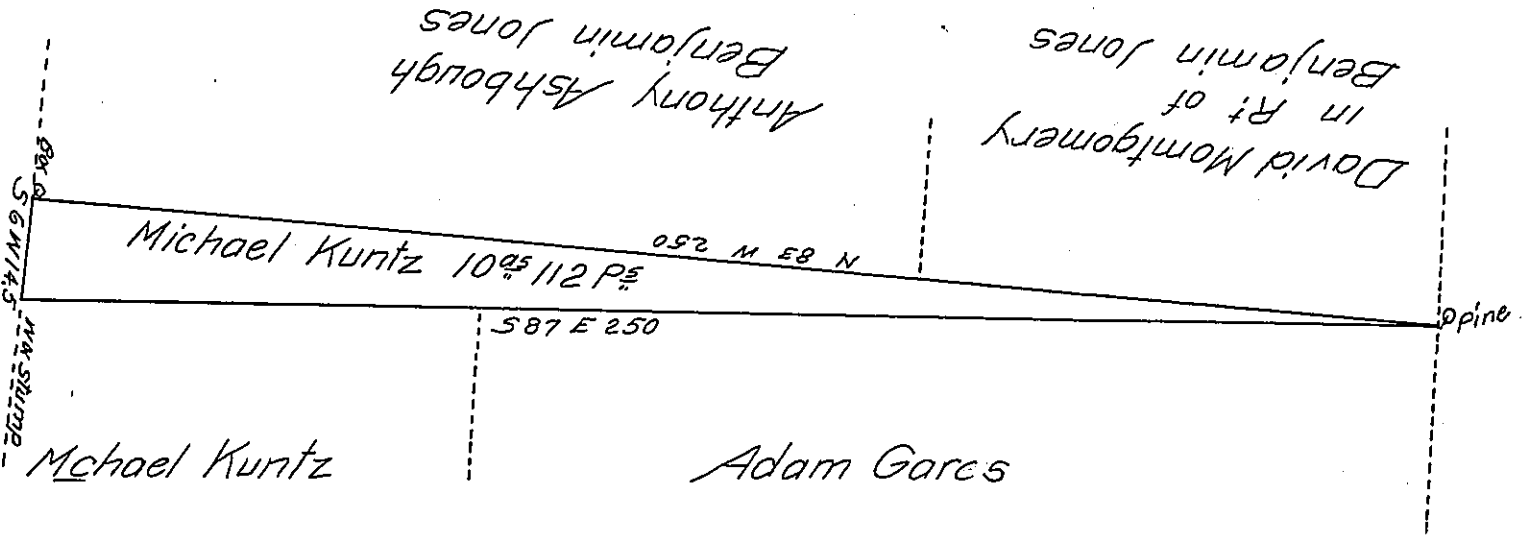 Anthony Ashbough
Benjamin Jones
David Momtgomery
in Rt. of
Benjamin Jones
S 6 W 14,5
Michael Kuntz 10as 112 Ps
N 83 W 250
S 87 E 250
Pine
stump
Mchael Kuntz
Adam Garcs